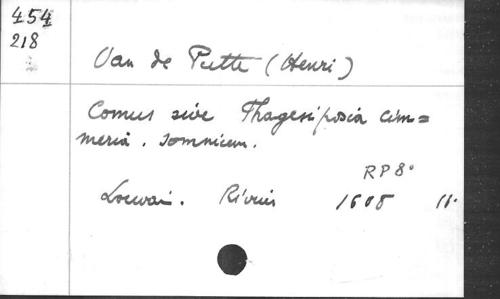 454
218
Van de Putte (Henri)
Comus sive Thagesiposia cim=
meria. Somnium.
RP 8°
Louvai. Rivius 1608 11.